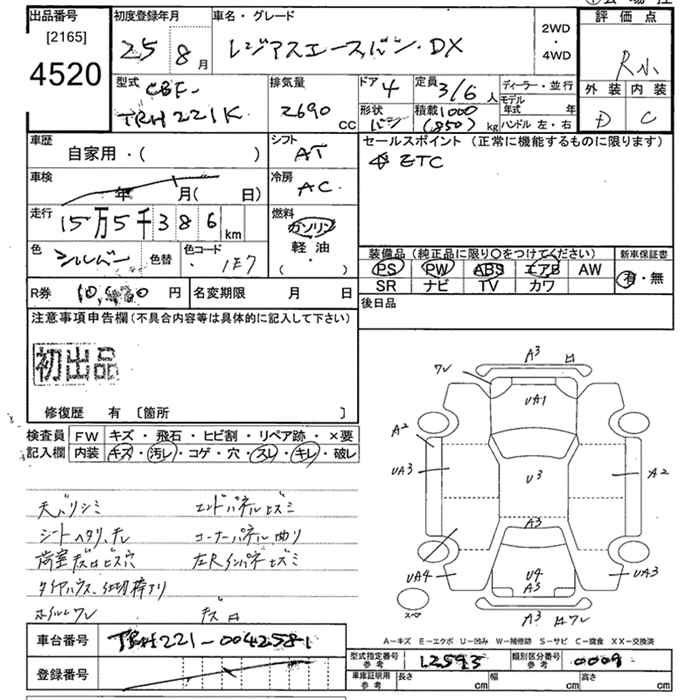 出品番号
[2165]
4520
初度登録年月
25 8月
車名・グレード
レジアスエースバン・DX
2WD
・
4WD
評価点
外装 内装
D C
型式
CBF-
TRH221K
排気量
2690 CC
ドア 4
形状 バン
定員 3/6人
積載 1000
(850) kg
ディーラー・並行
モデル年式 年
ハンドル 左・右
車歴
自家用・( )
シフト
AT
セールスポイント (正常に機能するものに限ります)
ETC
車検
年 月( 日)
冷房
AC
走行
15万5千386km
燃料
ガソリン
軽油
( ・ )
色
シルバー
色替
色コード
1E7
装備品 (純正品に限り○をつけてください)
新車保証書
PS PW ABS エアB AW
SR ナビ TV カワ
有・無
R券 円
名変期限 月 日
後日品
注意事項申告欄(不具合内容等は具体的に記入して下さい)
初出品
修復歴 有 〔箇所 〕
検査員記入欄
FW キズ・飛石・ヒビ割・リペア跡・×要
内装 キズ・汚レ・コゲ・穴・スレ・キレ・破レ
天バリシミ
エンドパネルヒズミ
コーナーパネル曲り
荷室キズロビス穴
左Rインパネヒズミ
ホイルワレ
キズロ
ワレ
A3
UA1
A2
UA3
U3
A2
A3
UA4
U4
A3
UA3
A3
スペア
A-キズ E-エクボ U-凹み W-補修跡 S-サビ C-腐食 XX-交換済
車台番号
TRH221-0042581
登録番号
型式指定番号
参考
12593
類別区分番号
参考
0009
車庫証明用
参考
長さ cm
幅 cm
高さ cm